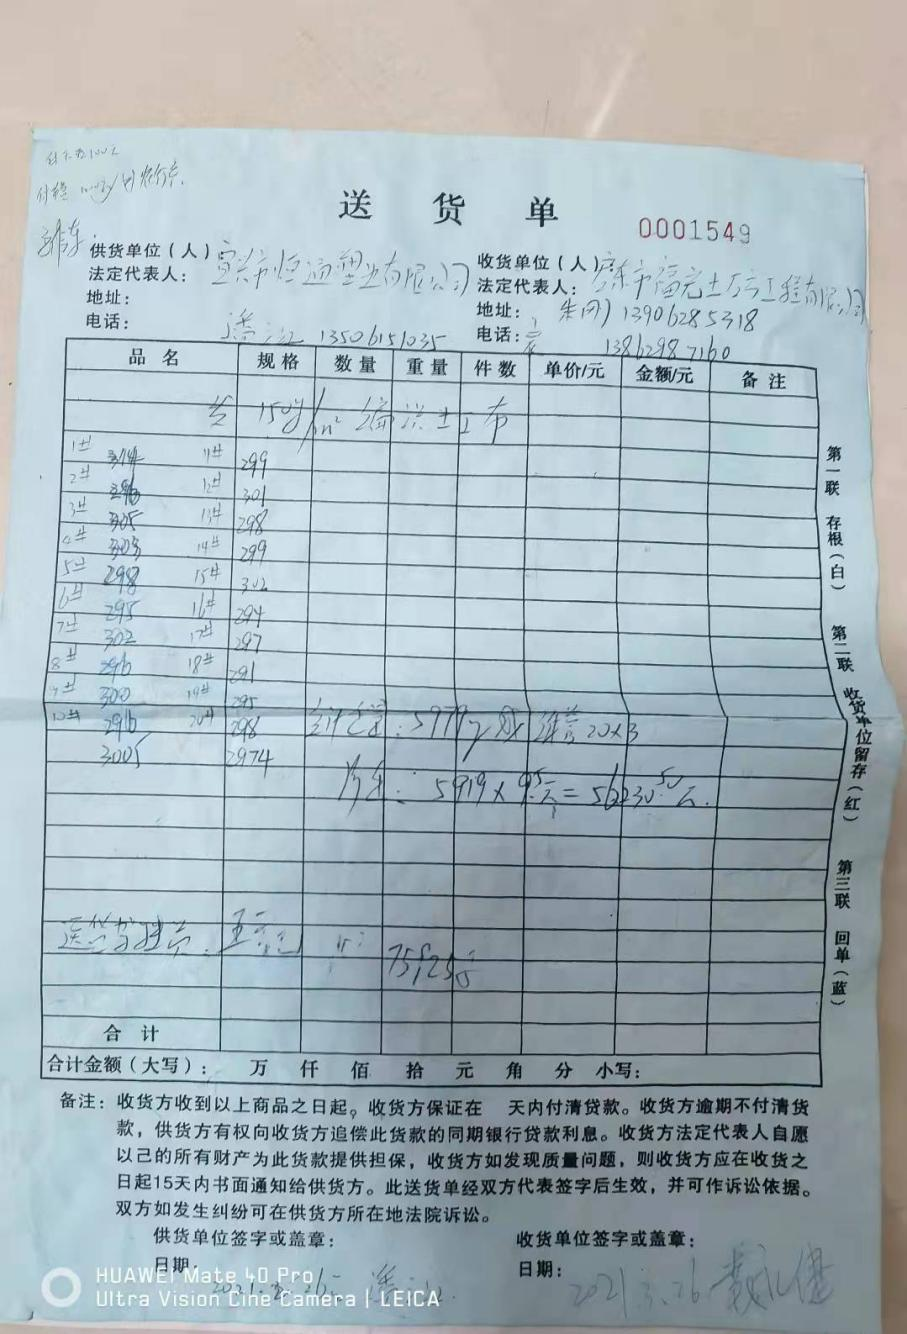 送 货 单
0001549
供货单位（人）
宜兴市恒通塑业有限公司
法定代表人：
地址：
电话：
13506151035
收货单位（人）
市福元土石方工程有限公司
法定代表人：
地址：
13906285318
电话：
13862987160
品 名 规 格 数 量 重 量 件 数 单价/元 金额/元 备 注
150g/m² 编织土工布
1# 11# 299
2# 12# 301
3# 305 13# 298
4# 303 14# 299
5# 298 15# 302
6# 295 16# 294
7# 302 17# 297
8# 296 18# 291
9# 300 19# 295
10# 296 20# 298
3005 2974
合计 5979
5919 × 9.5元 = 56230.50元.
合 计
合计金额（大写）： 万 仟 佰 拾 元 角 分 小写：
备注：收货方收到以上商品之日起，收货方保证在 天内付清贷款。收货方逾期不付清货
款，供货方有权向收货方追偿此货款的同期银行贷款利息。收货方法定代表人自愿
以己的所有财产为此货款提供担保，收货方如发现质量问题，则收货方应在收货之
日起15天内书面通知给供货方。此送货单经双方代表签字后生效，并可作诉讼依据。
双方如发生纠纷可在供货方所在地法院诉讼。
供货单位签字或盖章：
日期：
收货单位签字或盖章：
日期：
2021.3.26
第一联 存根（白）
第二联 收货单位留存（红）
第三联 回单（蓝）
HUAWEI Mate 40 Pro
Ultra Vision Cine Camera | LEICA